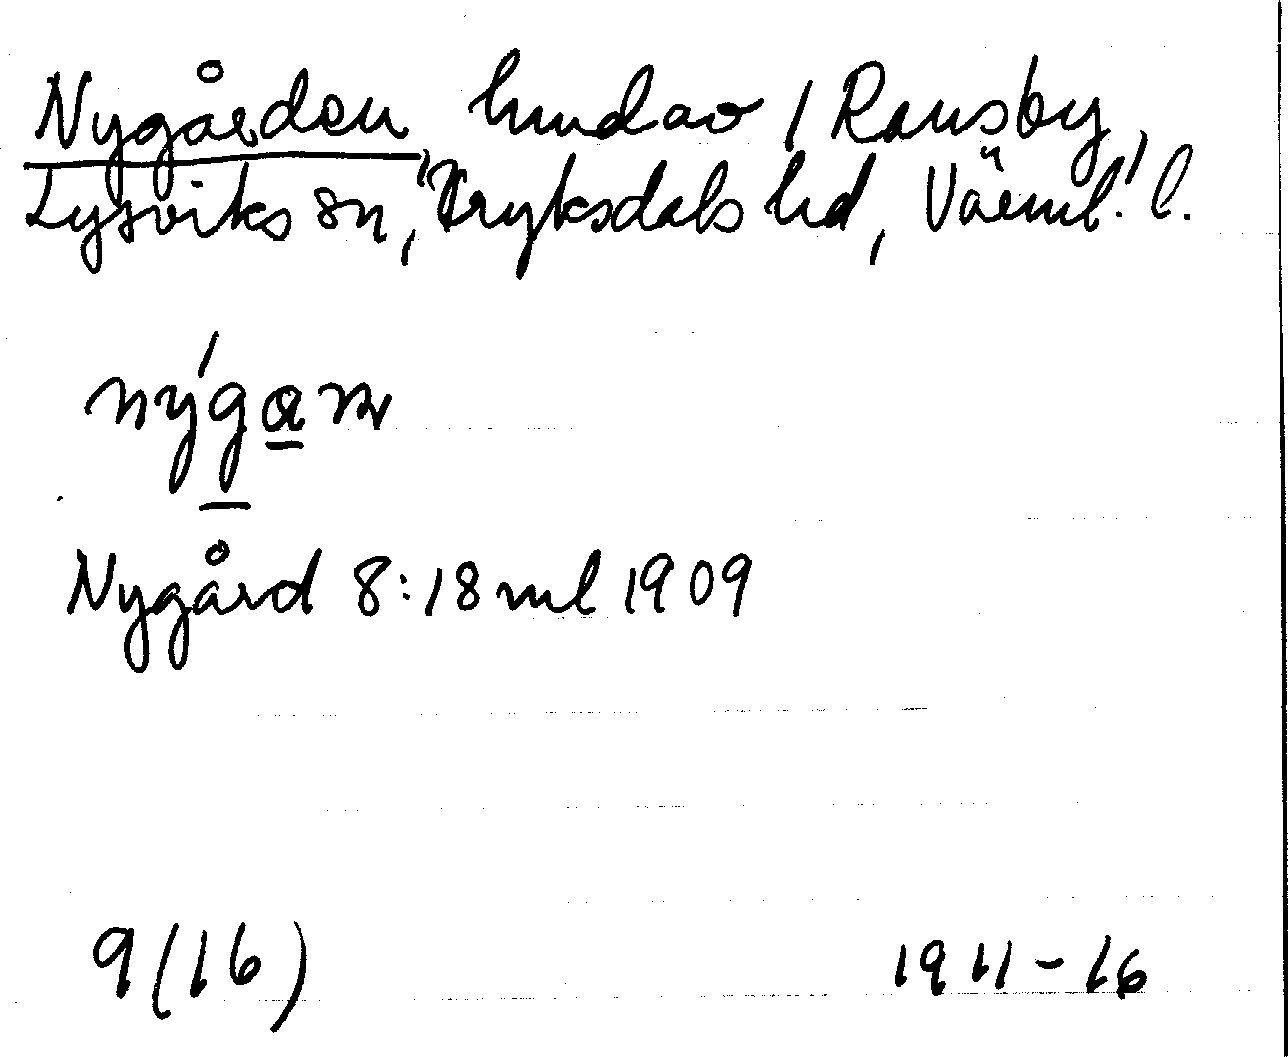 Nygården, hmdav i Ransby,
Lysviks sn, Fryksdals hd, Värml. l.
nýgan
Nygård 8:18 ml 1909
9(16)
1911-16